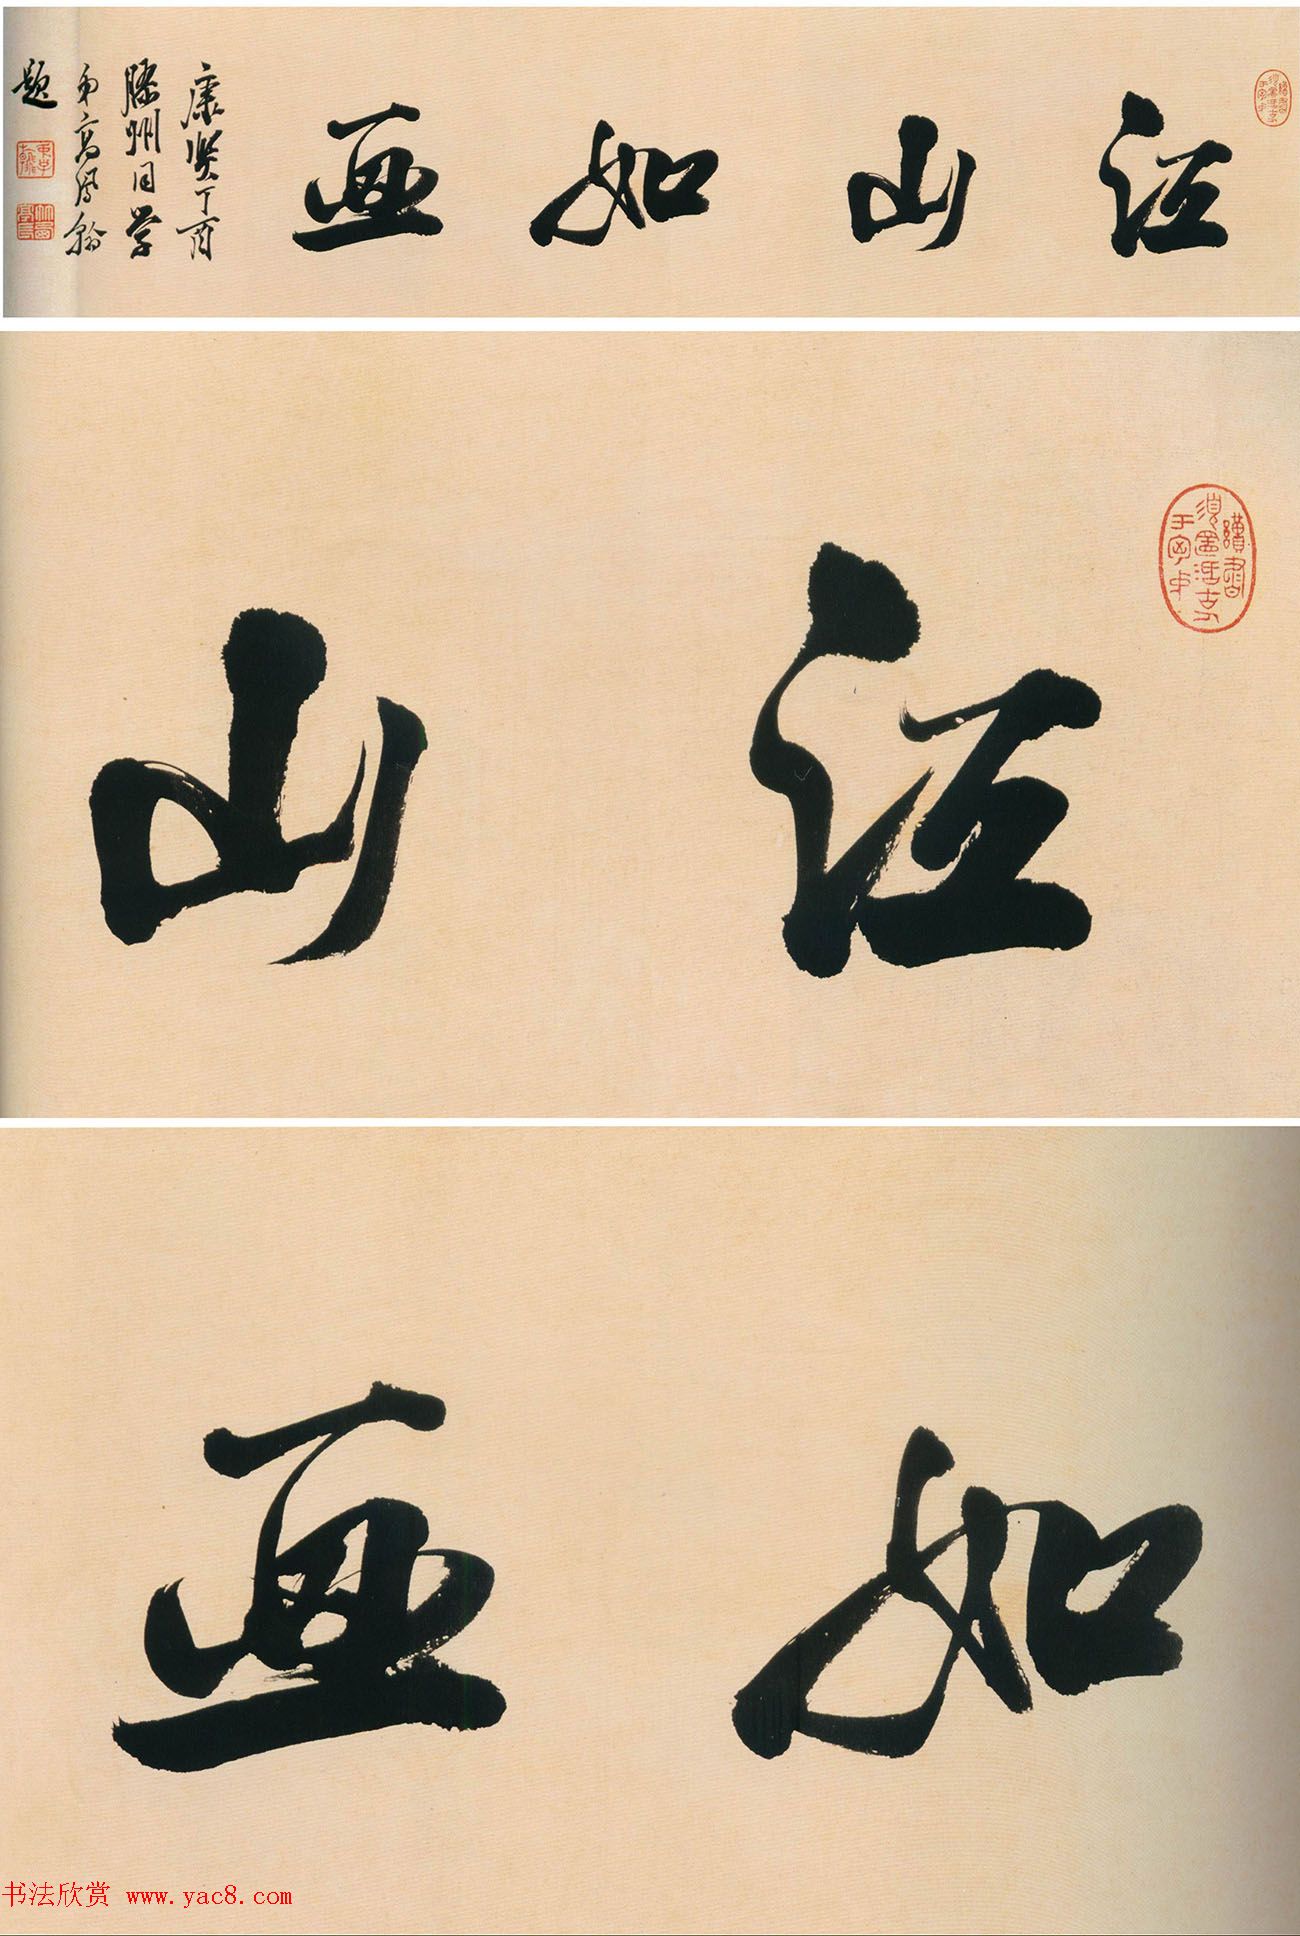 江山如画
康熙丁酉
膠州同学
弟高鳳翰
題
江山
如画
书法欣赏 www.yac8.com